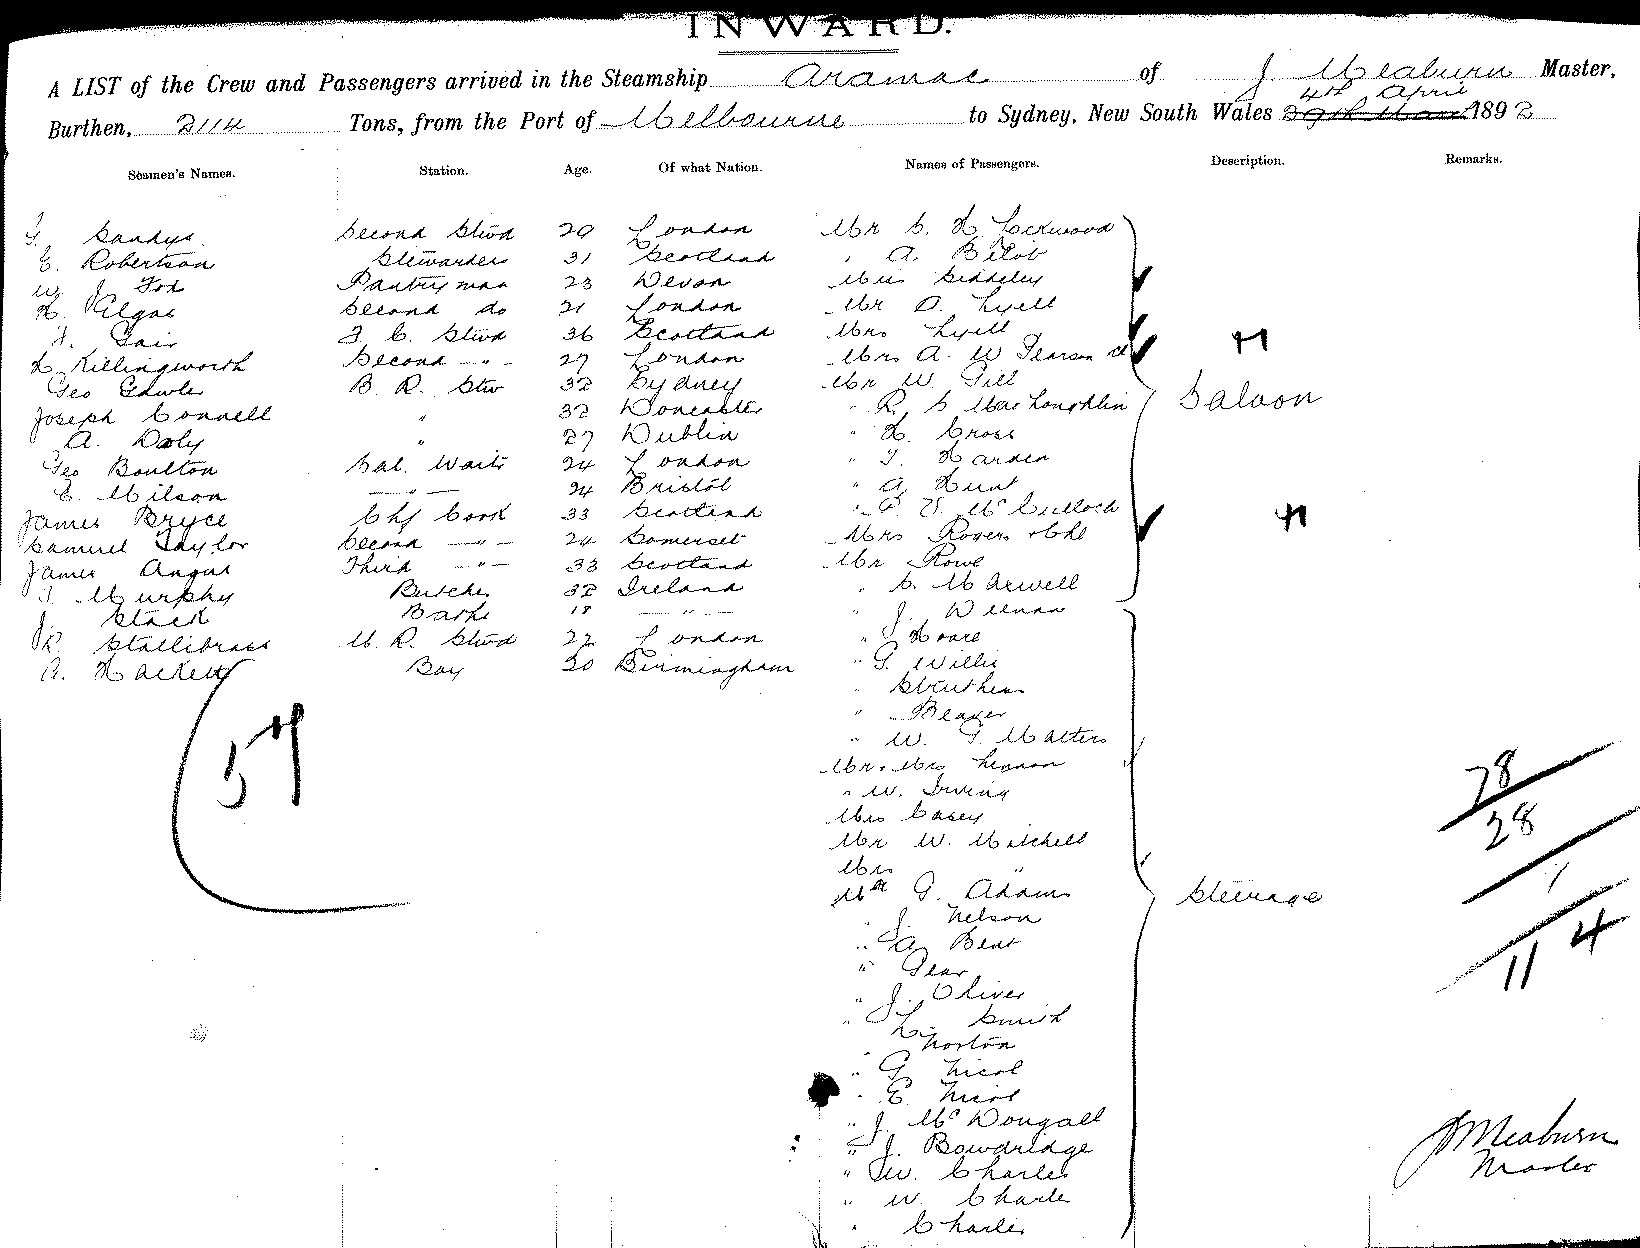 INWARD.
A LIST of the Crew and Passengers arrived in the Steamship Aramac of J. Meaburn Master,
4th April
Burthen, 2114 Tons, from the Port of Melbourne to Sydney, New South Wales 29th Mar 1892
Seamen's Names. Station. Age. Of what Nation. Names of Passengers. Description. Remarks.
Sandys Second Stwd 29 London Mr Lockwood
E. Robertson Stewardess 31 Scotland " A.
W J Fox Pantryman 23 Devon Miss
Second do 21 London Mr D. Lyell
Fair F. C. Stwd 36 Scotland Mrs Lyell
Killingworth Second -"- 27 London Mrs A. W Pearson
Geo B. R. Stw 32 Sydney Mr W. Gill
Joseph Connell " 32 Doncaster " R. C MacLoughlin Saloon
A. Daly " 27 Dublin " H. Cross
Geo Boulton Sal. Waitr 24 London " T. Harden
E. Milson -"- 24 Bristol " A. Hunt
James Bryce Chf Cook 33 Scotland " McCulloch
Samuel Taylor Second -"- 24 Somerset Mrs Rogers & Chd
James Angus Third -"- 33 Scotland Mr Rowe
T. Murphy Butcher 32 Ireland " C. Maxwell
J. Stack Baker 18 -"- " J.
R. Stallibrass M. R. Stwd 22 London " Hoare
A. Hackett Boy 20 Birmingham " G. Willis
" Struthers
" Beaver
" W. G Matters
57
Mr & Mrs Lennon
" W. Irving
Mrs Casey
Mr W. Mitchell
Mrs "
Mr G. Adams
Steerage
" J. Nelson
" A. Bent
" Gear
" J. Oliver
" L. Smith
" Norton
" G. Nicol
" E. Nicol
" J. McDougall
" J. Bowdridge
" W. Charles
" W. Charles
" Charles
28
28
11 4
J Meaburn
Master